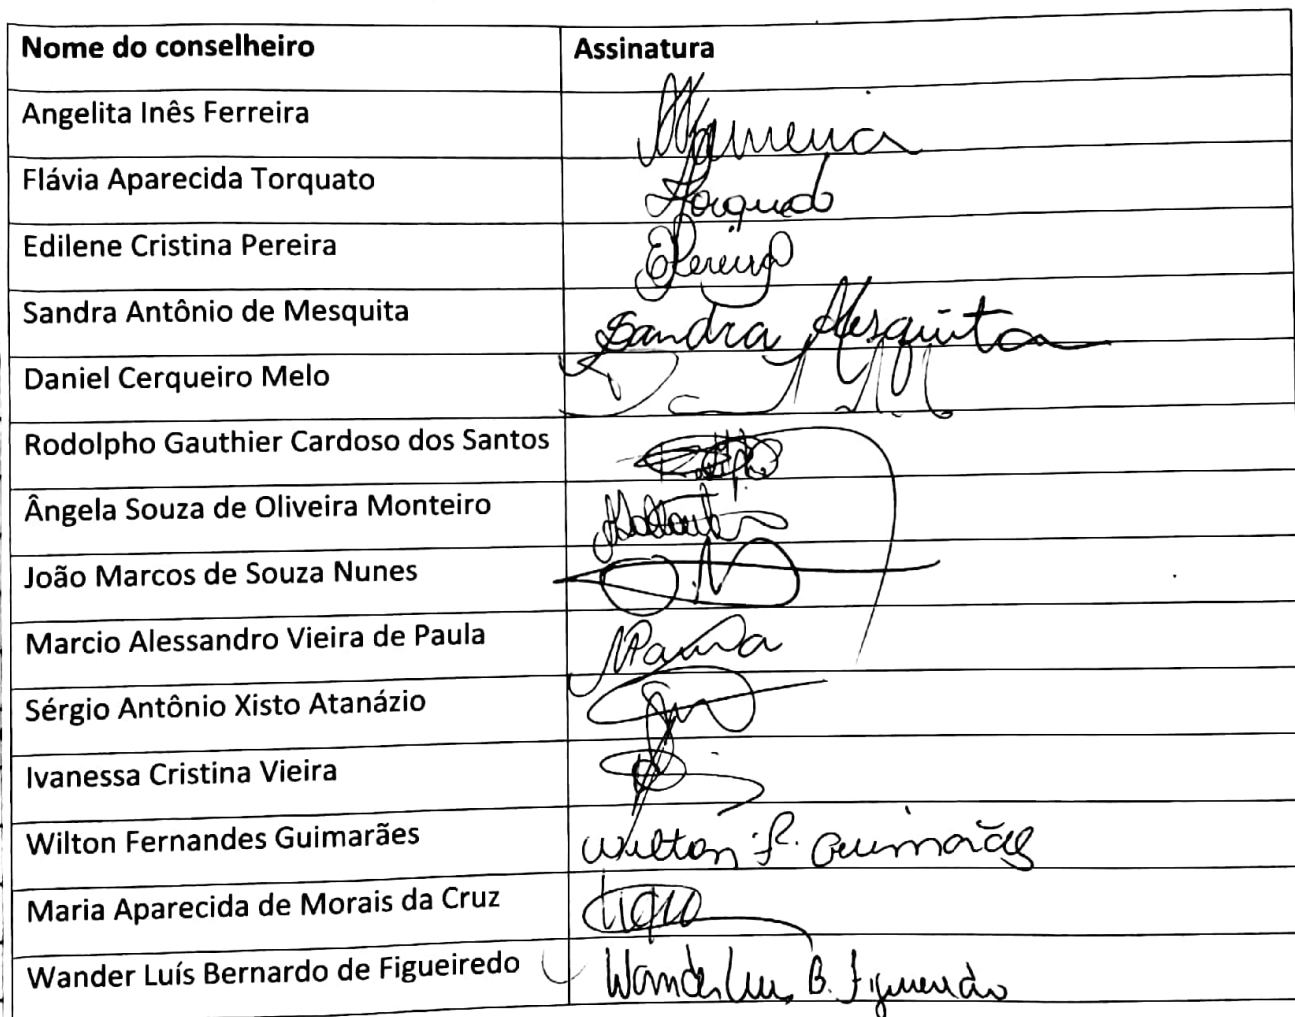 Nome do conselheiro Assinatura
Angelita Inês Ferreira
Flávia Aparecida Torquato
Edilene Cristina Pereira EPereira
Sandra Antônio de Mesquita Sandra Mesquita
Daniel Cerqueiro Melo
Rodolpho Gauthier Cardoso dos Santos
Ângela Souza de Oliveira Monteiro
João Marcos de Souza Nunes
Marcio Alessandro Vieira de Paula
Sérgio Antônio Xisto Atanázio
Ivanessa Cristina Vieira
Wilton Fernandes Guimarães Wilton F. Guimarães
Maria Aparecida de Morais da Cruz
Wander Luís Bernardo de Figueiredo Wander Luis B. Figueiredo